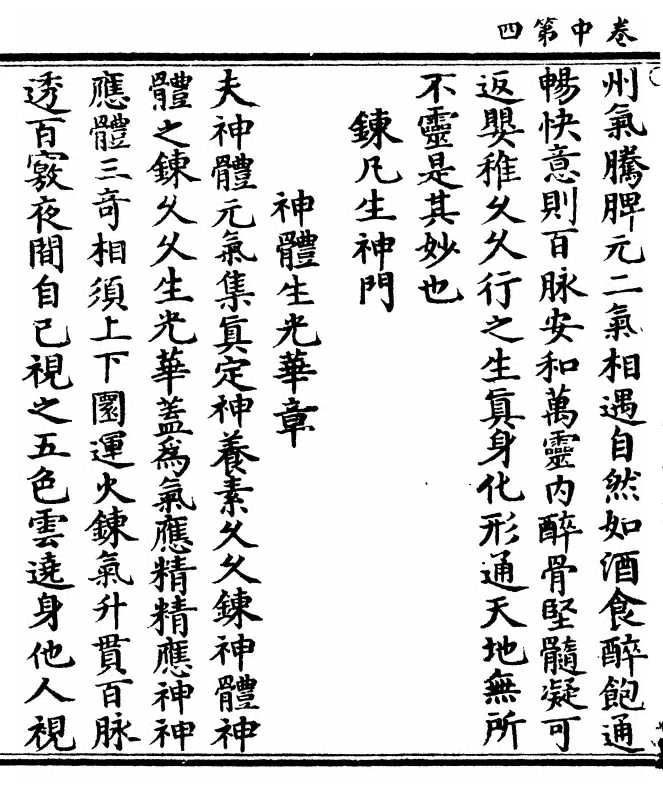 卷中第四
州氣騰脾元二氣相遇自然如酒食醉飽通
暢快意則百脉安和萬靈内醉骨堅髓凝可
返嬰稚久久行之生眞身化形通天地無所
不靈是其妙也
鍊凡生神門
神體生光華章
夫神體元氣集眞定神養素久久鍊神體神
體之鍊久久生光華蓋爲氣應精精應神神
應體三竒相須上下圜運火鍊氣升貫百脉
透百竅夜間自已視之五色雲遶身他人視